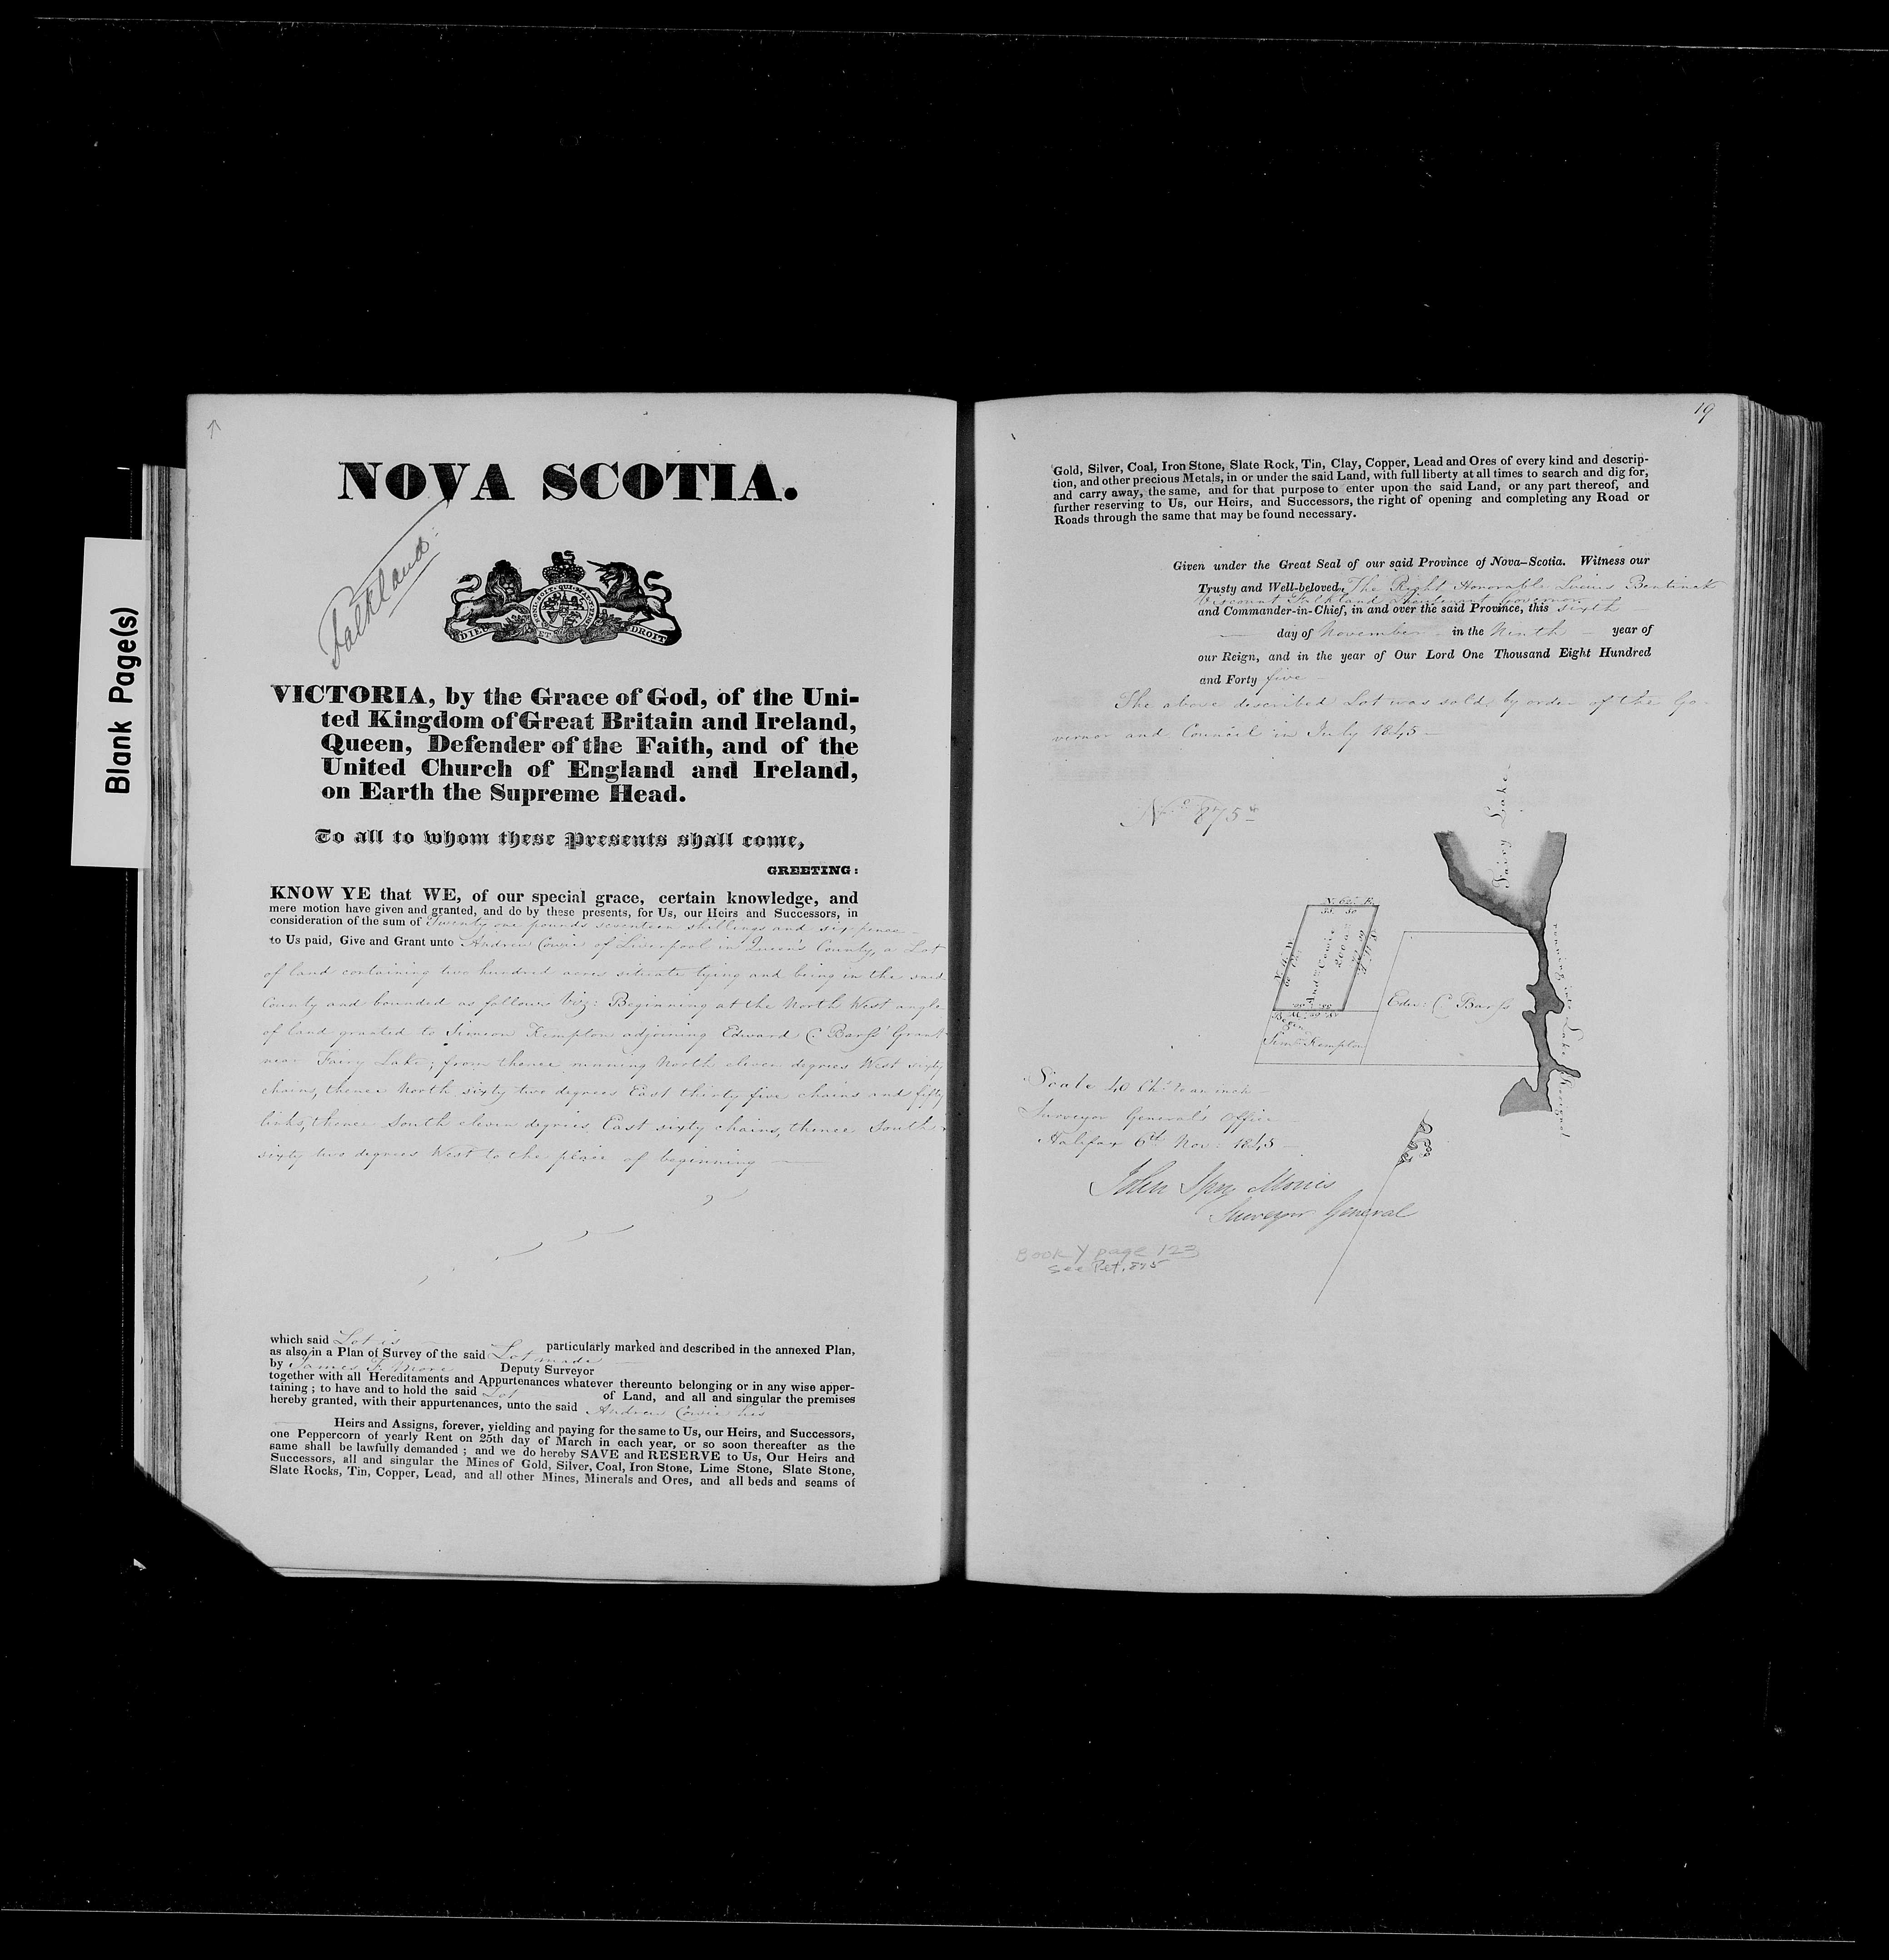 Blank Page(s)
NOVA SCOTIA.
Falkland.
DIEU ET MON DROIT
VICTORIA, by the Grace of God, of the Uni-
ted Kingdom of Great Britain and Ireland,
Queen, Defender of the Faith, and of the
United Church of England and Ireland,
on Earth the Supreme Head.
To all to whom these Presents shall come,
GREETING:
KNOW YE that WE, of our special grace, certain knowledge, and
mere motion have given and granted, and do by these presents, for Us, our Heirs and Successors, in
consideration of the sum of Twenty one pounds seventeen shillings and six pence
to Us paid, Give and Grant unto Andrew Cowie of Liverpool in Queen's County, a Lot
of land containing two hundred acres situate lying and being in the said
County and bounded as follows viz: Beginning at the North West angle
of land granted to Simeon Kempton adjoining Edward C. Barss' Grant
near Fairy Lake; from thence running North eleven degrees West sixty
chains, thence North sixty two degrees East thirty five chains and fifty
links, thence South eleven degrees East sixty chains, thence South
sixty two degrees West to the place of beginning
which said Lot is particularly marked and described in the annexed Plan,
as also in a Plan of Survey of the said Lot made
by James F. More Deputy Surveyor
together with all Hereditaments and Appurtenances whatever thereunto belonging or in any wise apper-
taining; to have and to hold the said Lot of Land, and all and singular the premises
hereby granted, with their appurtenances, unto the said Andrew Cowie his
Heirs and Assigns, forever, yielding and paying for the same to Us, our Heirs, and Successors,
one Peppercorn of yearly Rent on 25th day of March in each year, or so soon thereafter as the
same shall be lawfully demanded; and we do hereby SAVE and RESERVE to Us, Our Heirs and
Successors, all and singular the Mines of Gold, Silver, Coal, Iron Stone, Lime Stone, Slate Stone,
Slate Rocks, Tin, Copper, Lead, and all other Mines, Minerals and Ores, and all beds and seams of
19
Gold, Silver, Coal, Iron Stone, Slate Rock, Tin, Clay, Copper, Lead and Ores of every kind and descrip-
tion, and other precious Metals, in or under the said Land, with full liberty at all times to search and dig for,
and carry away, the same, and for that purpose to enter upon the said Land, or any part thereof, and
further reserving to Us, our Heirs, and Successors, the right of opening and completing any Road or
Roads through the same that may be found necessary.
Given under the Great Seal of our said Province of Nova-Scotia. Witness our
Trusty and Well-beloved, The Right Honorable Lucius Bentinck
Viscount Falkland Lieutenant Governor
and Commander-in-Chief, in and over the said Province, this sixth
day of November in the Ninth year of
our Reign, and in the year of Our Lord One Thousand Eight Hundred
and Forty five
The above described Lot was sold by order of the Go-
vernor and Council in July 1845
No. 875
Fairy Lake
N. 62° E.
35. 50
N. 11. W.
60
Andw Cowie
200 a
S. 11. E.
60
Edw: C. Barss
Simn Kempton
running into Lake Rosignal
Scale 40 Chs to an inch
Surveyor General's Office
Halifax 6th Nov: 1845
John Spry Morris
Surveyor General
Book Y page 123
see Pet. 875